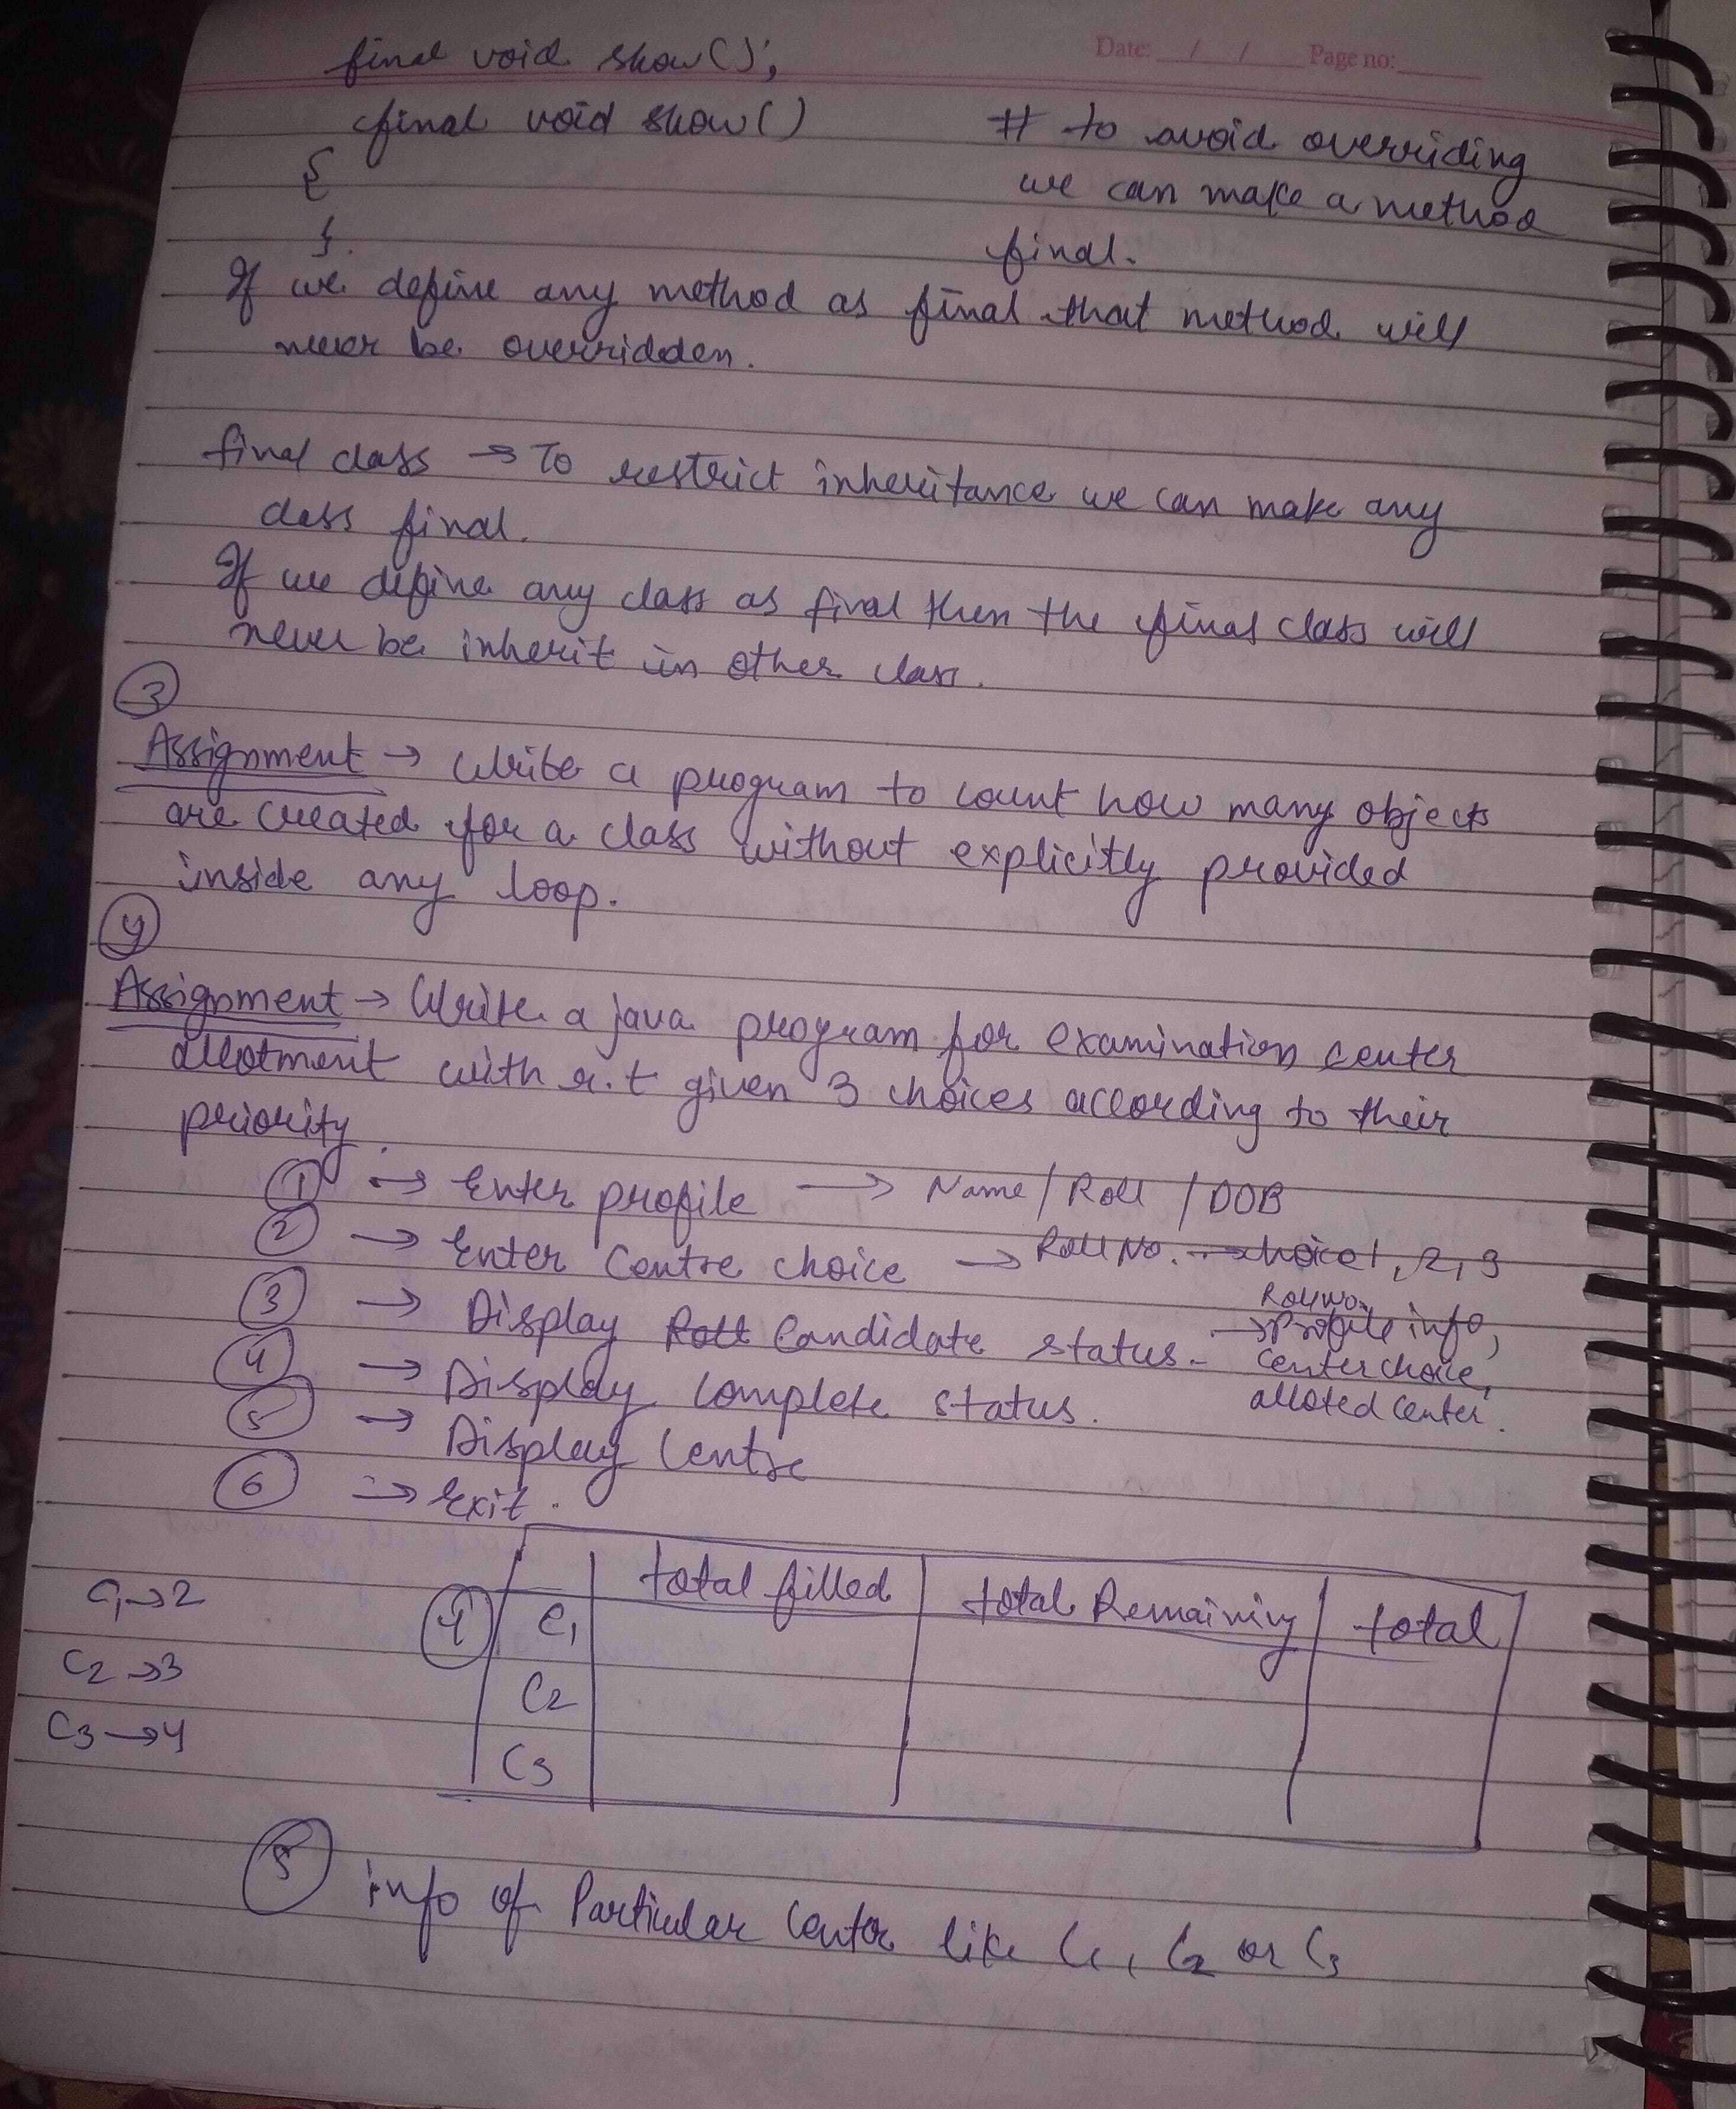 Date: __/__/__ Page no:____
final void show();
final void show() # to avoid overriding
{ we can make a method
}. final.
If we define any method as final that method will
never be overridden.
final class → To restrict inheritance we can make any
class final.
If we define any class as final then the final class will
never be inherit in other class.
3
Assignment → Write a program to count how many objects
are created for a class without explicitly provided
inside any loop.
4
Assignment → Write a java program for examination center
allotment with r.t given 3 choices according to their
priority.
1 → Enter profile → Name / Roll / DOB
2 → Enter Centre choice → Roll No. → choice 1, 2, 3
3 → Display Roll Candidate status. → Roll no. Profile info,
center choice,
alloted center.
4 → Display complete status.
5 → Display Centre
6 → Exit.
total filled total Remaining total
C1 → 2 4 C1
C2 → 3 C2
C3 → 4 C3
5 info of Particular Center like C1, C2 or C3